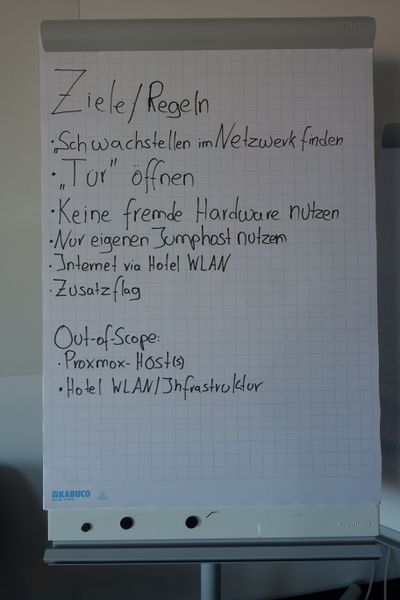 Ziele/Regeln
· „Schwachstellen im Netzwerk finden
· „Tür" öffnen
· Keine fremde Hardware nutzen
· Nur eigenen Jumphost nutzen
· Internet via Hotel WLAN
· Zusatzflag
Out-of-Scope:
· Proxmox-Host(s)
· Hotel WLAN/Infrastruktur
KABUCO